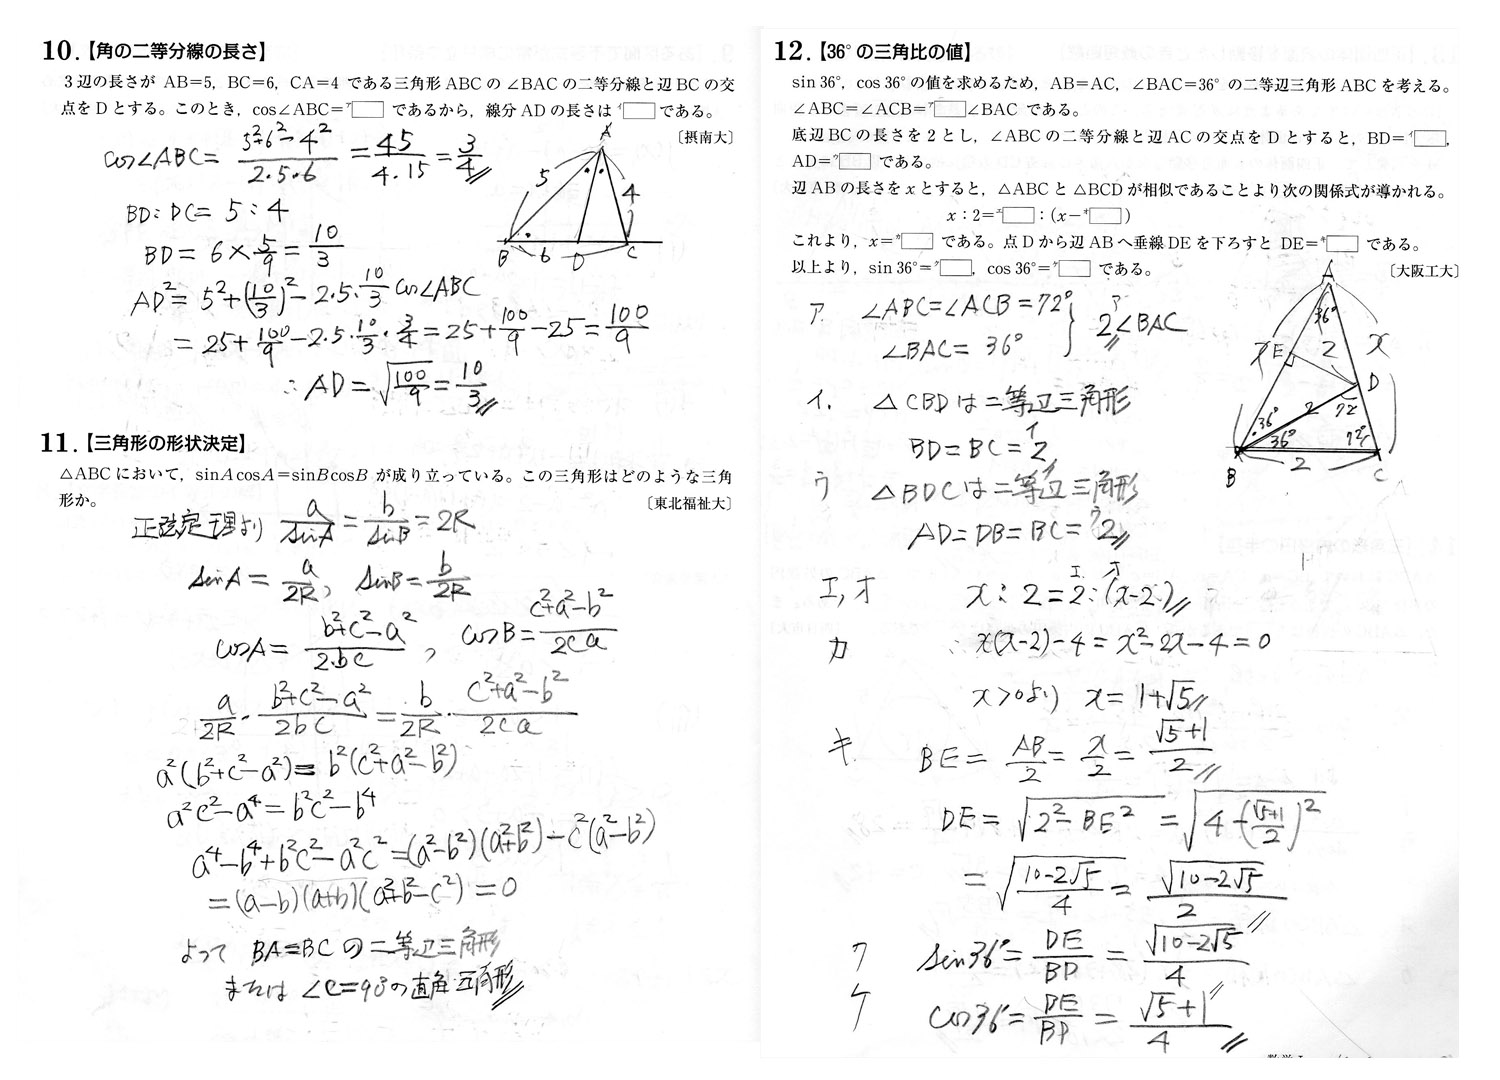 10.【角の二等分線の長さ】
3辺の長さが AB=5, BC=6, CA=4 である三角形ABCの∠BACの二等分線と辺BCの交
点をDとする。このとき, cos∠ABC=ア□ であるから, 線分ADの長さはイ□である。
〔摂南大〕
cos∠ABC = (5²+6²-4²)/(2・5・6) = 45/(4・15) = 3/4
A
5
4
B 6 D C
BD:DC = 5:4
BD = 6×5/9 = 10/3
AD² = 5²+(10/3)²-2・5・10/3 cos∠ABC
= 25+100/9-2・5・10/3・3/4 = 25+100/9-25 = 100/9
∴ AD = √(100/9) = 10/3
11.【三角形の形状決定】
△ABCにおいて, sinAcosA=sinBcosB が成り立っている。この三角形はどのような三角
形か。
〔東北福祉大〕
正弦定理より a/sinA = b/sinB = 2R
sinA = a/2R, sinB = b/2R
cosA = (b²+c²-a²)/2bc, cosB = (c²+a²-b²)/2ca
a/2R・(b²+c²-a²)/2bc = b/2R・(c²+a²-b²)/2ca
a²(b²+c²-a²) = b²(c²+a²-b²)
a²c²-a⁴ = b²c²-b⁴
a⁴-b⁴+b²c²-a²c² = (a²-b²)(a²+b²)-c²(a²-b²)
= (a-b)(a+b)(a²+b²-c²) = 0
よって BA=BCの二等辺三角形
または ∠C=90°の直角三角形
12.【36°の三角比の値】
sin36°, cos36°の値を求めるため, AB=AC, ∠BAC=36°の二等辺三角形ABCを考える。
∠ABC=∠ACB=ア□∠BAC である。
底辺BCの長さを2とし, ∠ABCの二等分線と辺ACの交点をDとすると, BD=イ□,
AD=ウ□ である。
辺ABの長さをxとすると, △ABCと△BCDが相似であることより次の関係式が導かれる。
x:2=エ□:(x-オ□)
これより, x=カ□ である。点Dから辺ABへ垂線DEを下ろすと DE=キ□ である。
以上より, sin36°=ク□, cos36°=ケ□ である。
〔大阪工大〕
ア ∠ABC=∠ACB=72°
∠BAC=36°
ア 2∠BAC
A
36°
x E 2 x
D
36° 2 72
36° 72°
B 2 C
イ. △CBDは二等辺三角形
BD=BC=イ2
ウ △BDCは二等辺三角形
AD=DB=BC=ウ2
エ,オ x:2=エ2:(x-オ2)
カ ∴x(x-2)-4=x²-2x-4=0
x>0より x=1+√5
キ. BE = AB/2 = x/2 = (√5+1)/2
DE = √(2²-BE²) = √(4-((√5+1)/2)²)
= √((10-2√5)/4) = √(10-2√5)/2
ク sin36° = DE/BD = √(10-2√5)/4
ケ cos36° = DE/BD = (√5+1)/4